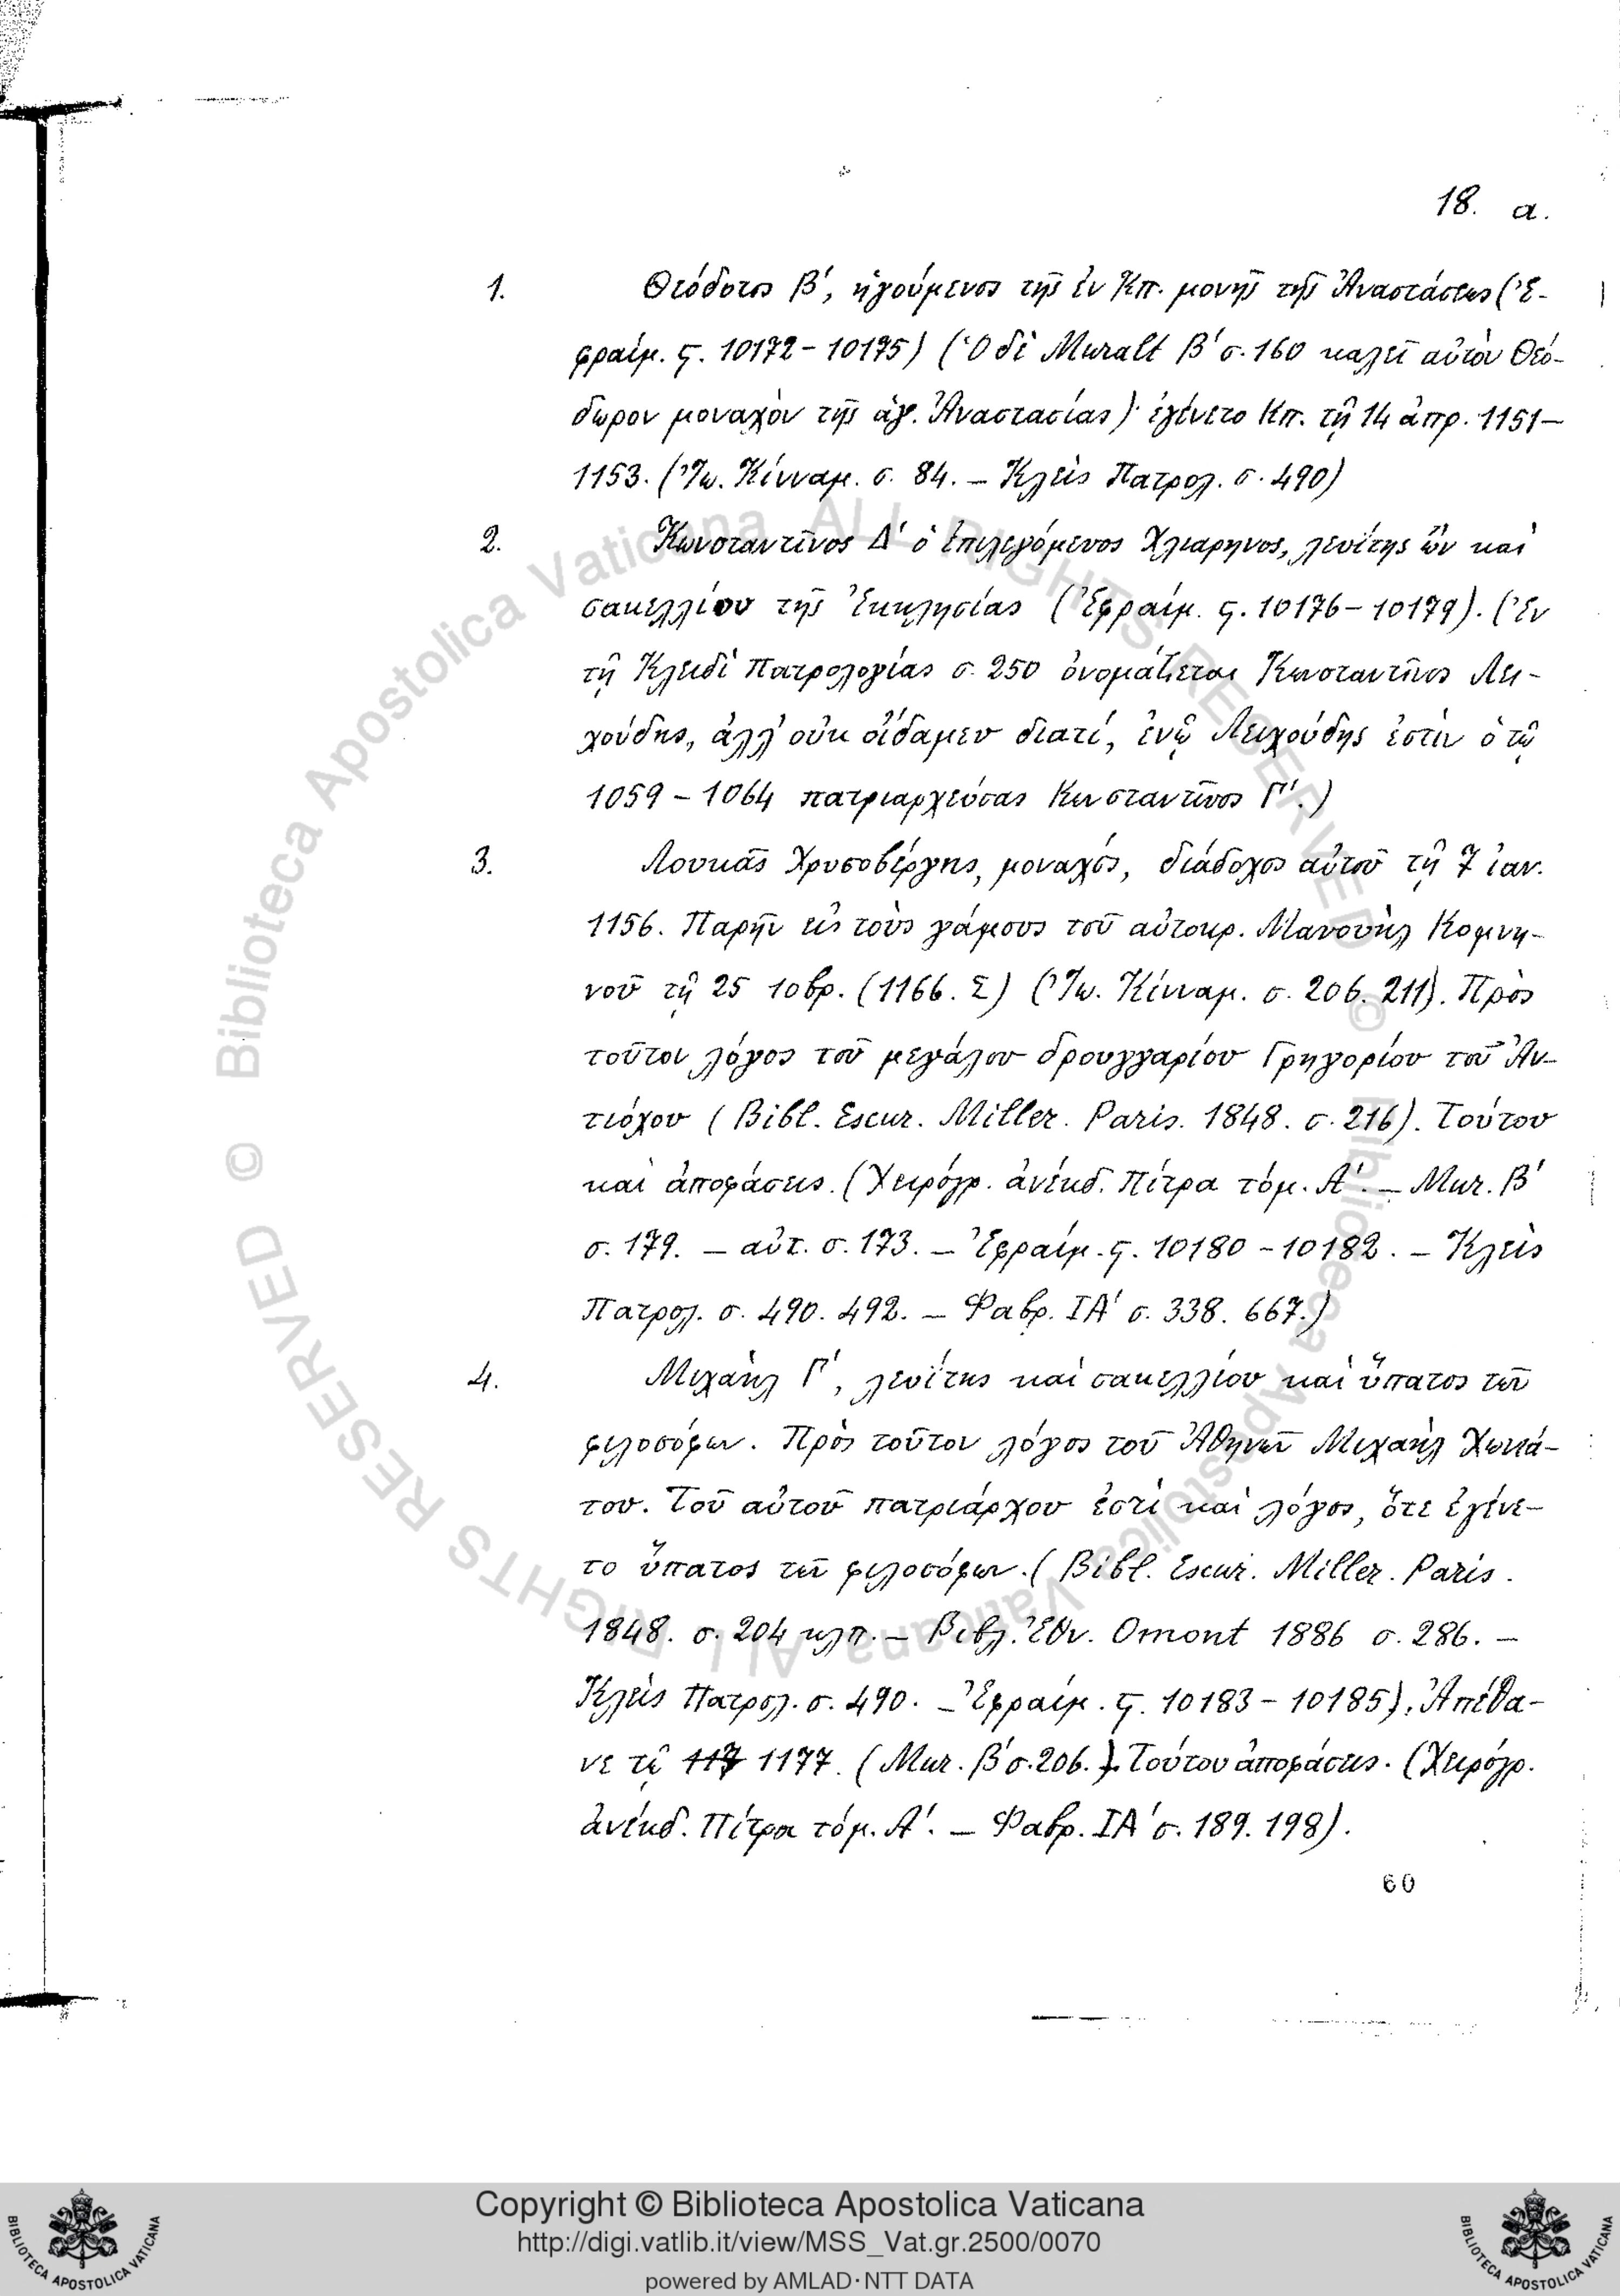 18. α.
1. Θεόδοτος Β΄, ἡγούμενος τῆς ἐν Κπ. μονῆς τῆς Ἀναστάσεως (Ἐ-
φραίμ. ς. 10172-10175) (Ὁ δὲ Muralt Β΄ σ. 160 καλεῖ αὐτὸν Θεό-
δωρον μοναχὸν τῆς ἁγ. Ἀναστασίας)· ἐγένετο Κπ. τῇ 14 ἀπρ. 1151-
1153. (Ἰω. Κίνναμ. σ. 84. - Κλεὶς Πατρολ. σ. 490)
2. Κωνσταντῖνος Δ΄ ὁ ἐπιλεγόμενος Χλιαρηνος, λευίτης ὢν καὶ
σακελλίου τῆς Ἐκκλησίας (Ἐφραίμ. ς. 10176-10179). (Ἐν
τῇ Κλειδὶ Πατρολογίας σ. 250 ὀνομάζεται Κωνσταντῖνος Λει-
χούδης, ἀλλ' οὐκ οἴδαμεν διατί, ἐνῷ Λειχούδης ἐστὶν ὁ τῷ
1059-1064 πατριαρχεύσας Κωνσταντῖνος Γ΄.)
3. Λουκᾶς Χρυσοβέργης, μοναχός, διάδοχος αὐτοῦ τῇ 7 ἰαν.
1156. Παρῆν εἰς τοὺς γάμους τοῦ αὐτοκρ. Μανουὴλ Κομνη-
νοῦ τῇ 25 10βρ. (1166. Σ) (Ἰω. Κίνναμ. σ. 206. 211). Πρὸς
τοῦτον λόγος τοῦ μεγάλου δρουγγαρίου Γρηγορίου τοῦ Ἀν-
τιόχου (Bibl. Escur. Miller. Paris. 1848. σ. 216). Τούτου
καὶ ἀποφάσεις. (Χειρόγρ. ἀνέκδ. Πίτρα τόμ. Α΄. - Mur. Β΄
σ. 179. - αὐτ. σ. 173. - Ἐφραίμ. ς. 10180-10182. - Κλεὶς
Πατρολ. σ. 490. 492. - Φαβρ. ΙΑ΄ σ. 338. 667.)
4. Μιχαὴλ Γ΄, λευΐτης καὶ σακελλίου καὶ ὕπατος τῶν
φιλοσόφων. Πρὸς τοῦτον λόγος τοῦ Ἀθηνῶν Μιχαὴλ Χωνιά-
του. Τοῦ αὐτοῦ πατριάρχου ἐστὶ καὶ λόγος, ὅτε ἐγίνε-
το ὕπατος τῶν φιλοσόφων. (Bibl. Escur. Miller. Paris.
1848. σ. 204 κλπ. - Βιβλ. Ἐθν. Omont 1886 σ. 286. -
Κλεὶς Πατρολ. σ. 490. - Ἐφραίμ. ς. 10183-10185). Ἀπέθα-
νε τῷ 117 1177. (Mur. Β΄ σ. 206.). Τούτου ἀποφάσεις. (Χειρόγρ.
ἀνέκδ. Πίτρα τόμ. Α΄. - Φαβρ. ΙΑ΄ σ. 189. 198).
60
© Biblioteca Apostolica Vaticana ALL RIGHTS RESERVED © Biblioteca Apostolica Vaticana ALL RIGHTS RESERVED
Copyright © Biblioteca Apostolica Vaticana
http://digi.vatlib.it/view/MSS_Vat.gr.2500/0070
powered by AMLAD·NTT DATA
BIBLIOTECA APOSTOLICA VATICANA
BIBLIOTECA APOSTOLICA VATICANA